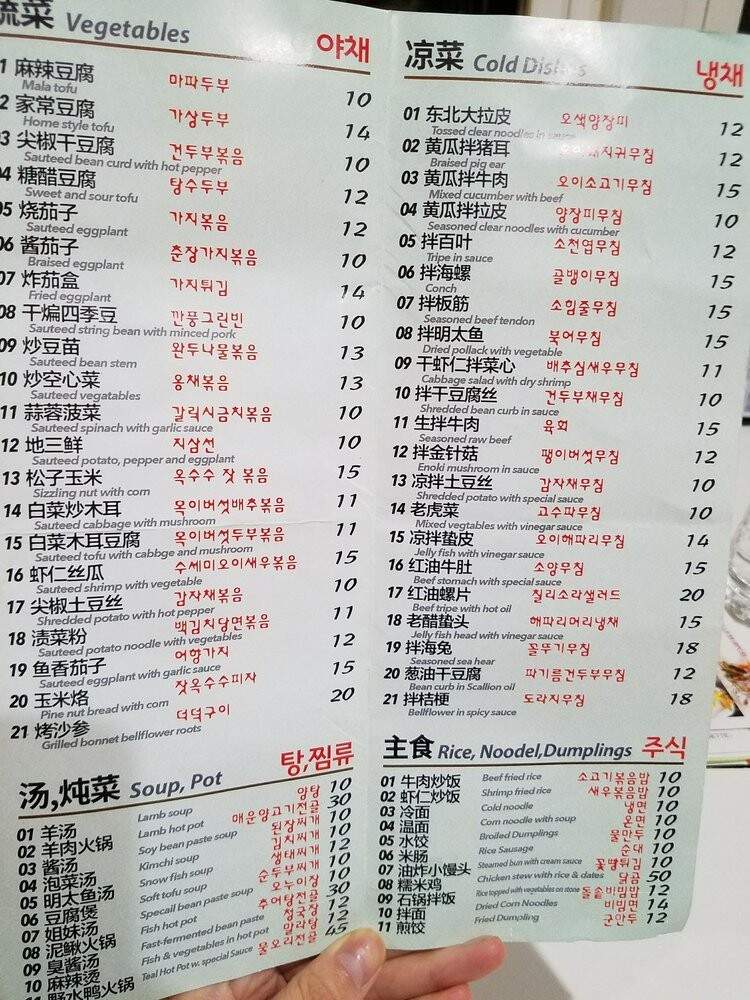 蔬菜 Vegetables 야채
1 麻辣豆腐 마파두부
Mala tofu 10
2 家常豆腐 가상두부
Home style tofu 14
3 尖椒干豆腐 건두부볶음
Sauteed bean curd with hot pepper 10
4 糖醋豆腐 탕수두부
Sweet and sour tofu 12
05 烧茄子 가지볶음
Sauteed eggplant 12
06 酱茄子 춘장가지볶음
Braised eggplant 10
07 炸茄盒 가지튀김
Fried eggplant 14
08 干煸四季豆 깐풍그린빈
Sauteed string bean with minced pork 10
09 炒豆苗 완두나물볶음
Sauteed bean stem 13
10 炒空心菜 옹채볶음
Sauteed vegatables 13
11 蒜蓉菠菜 갈릭시금치볶음
Sauteed spinach with garlic sauce 10
12 地三鲜 지삼선
Sauteed potato, pepper and eggplant 10
13 松子玉米 옥수수 잣 볶음
Sizzling nut with corn 15
14 白菜炒木耳 목이버섯배추볶음
Sauteed cabbage with mushroom 11
15 白菜木耳豆腐 목이버섯두부볶음
Sauteed tofu with cabbge and mushroom 11
16 虾仁丝瓜 수세미오이새우볶음
Sauteed shrimp with vegetable 15
17 尖椒土豆丝 감자채볶음
Shredded potato with hot pepper 10
18 渍菜粉 백김치당면볶음
Sauteed potato noodle with vegetables 11
19 鱼香茄子 어향가지
Sauteed eggplant with garlic sauce 12
20 玉米烙 잣옥수수피자
Pine nut bread with corn 15
21 烤沙参 더덕구이
Grilled bonnet bellflower roots 20
汤,炖菜 Soup, Pot 탕,찜류
01 羊汤 Lamb soup 양탕 10
02 羊肉火锅 Lamb hot pot 매운양고기전골 30
03 酱汤 Soy bean paste soup 된장찌개 10
04 泡菜汤 Kimchi soup 김치찌개 10
05 明太鱼汤 Snow fish soup 생태찌개 12
06 豆腐煲 Soft tofu soup 순두부찌개 10
07 姐妹汤 Specail bean paste soup 오누이장 12
08 泥鳅火锅 Fish hot pot 추어탕전골 30
09 臭酱汤 Fast-fermented bean paste 청국장 12
10 麻辣烫 Fish & vegetables in hot pot 말라탕 12
11 野水鸭火锅 Teal Hot Pot w. special Sauce 물오리전골 45
凉菜 Cold Dishes 냉채
01 东北大拉皮 오색양장피
Tossed clear noodles in sauce 12
02 黄瓜拌猪耳 돼지귀무침
Braised pig ear 12
03 黄瓜拌牛肉 오이소고기무침
Mixed cucumber with beef 15
04 黄瓜拌拉皮 양장피무침
Seasoned clear noodles with cucumber 10
05 拌百叶 소천엽무침
Tripe in sauce 12
06 拌海螺 골뱅이무침
Conch 15
07 拌板筋 소힘줄무침
Seasoned beef tendon 15
08 拌明太鱼 북어무침
Dried pollack with vegetable 15
09 干虾仁拌菜心 배추심새우무침
Cabbage salad with dry shrimp 11
10 拌干豆腐丝 건두부채무침
Shredded bean curb in sauce 10
11 生拌牛肉 육회
Seasoned raw beef 15
12 拌金针菇 팽이버섯무침
Enoki mushroom in sauce 12
13 凉拌土豆丝 감자채무침
Shredded potato with special sauce 10
14 老虎菜 고수파무침
Mixed vegtables with vinegar sauce 10
15 凉拌蛰皮 오이해파리무침
Jelly fish with vinegar sauce 14
16 红油牛肚 소양무침
Beef stomach with special sauce 15
17 红油螺片 칠리소라샐러드
Beef tripe with hot oil 20
18 老醋蛰头 해파리머리냉채
Jelly fish head with vinegar sauce 15
19 拌海兔 꼴뚜기무침
Seasoned sea hear 18
20 葱油干豆腐 파기름건두부무침
Bean curb in Scallion oil 12
21 拌桔梗 도라지무침
Bellflower in spicy sauce 18
主食 Rice, Noodel,Dumplings 주식
01 牛肉炒饭 Beef fried rice 소고기볶음밥 10
02 虾仁炒饭 Shrimp fried rice 새우볶음밥 10
03 冷面 Cold noodle 냉면 10
04 温面 Corn noodle with soup 온면 10
05 水饺 Broiled Dumplings 물만두 10
06 米肠 Rice Sausage 순대 10
07 油炸小馒头 Steamed bun with cream sauce 꽃빵튀김 10
08 糯米鸡 Chicken stew with rice & dates 닭곰 50
09 石锅拌饭 Rice topped with vegetables on stone 돌솥비빔밥 12
10 拌面 Dried Corn Noodles 비빔면 14
11 煎饺 Fried Dumpling 군만두 12